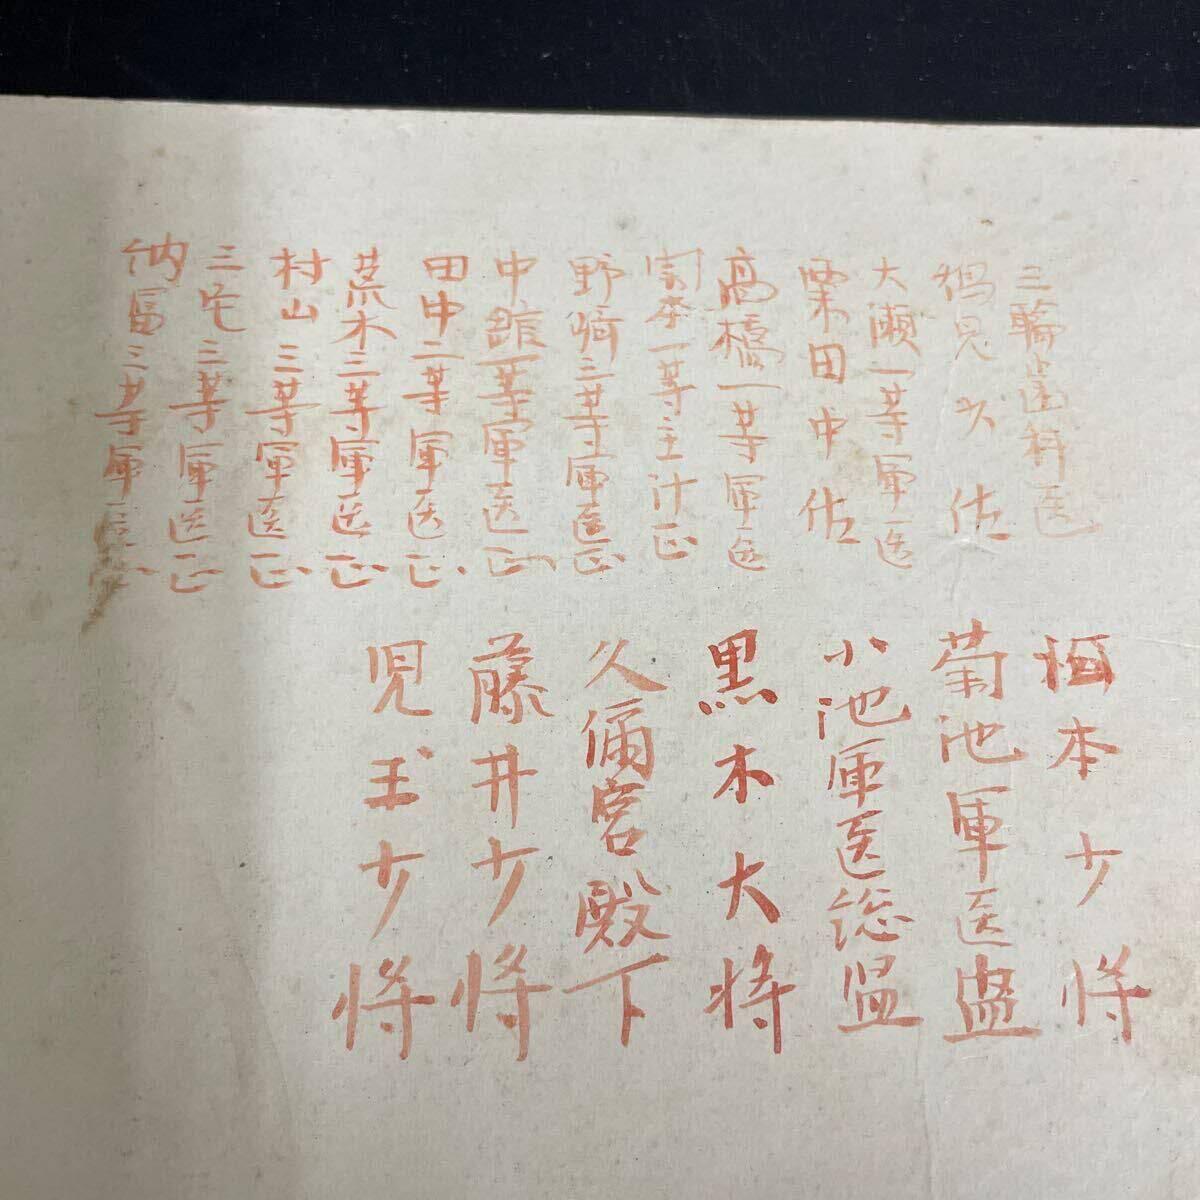 三輪歯科医
鶴見少佐
大瀬一等軍医
栗田中佐
高橋一等軍医
本一等主計正
野崎三等軍医正
中舘一等軍医正
田中二等軍医正
荒木三等軍医正
村山三等軍医正
三宅三等軍医正
納富三等軍医正
本少将
菊池軍医監
小池軍医総監
黒木大将
久邇宮殿下
藤井少将
児玉少将